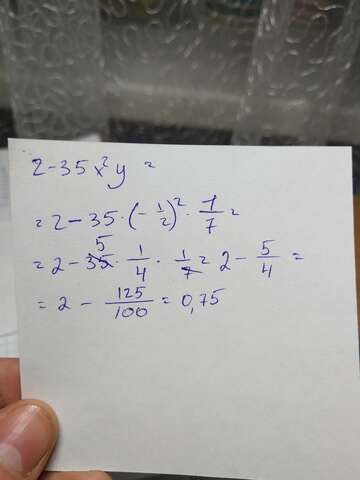 2-35x²y =
= 2-35·(-1/2)²·1/7 =
= 2-35·1/4·1/7 = 2-5/4 =
5
= 2-125/100 = 0,75